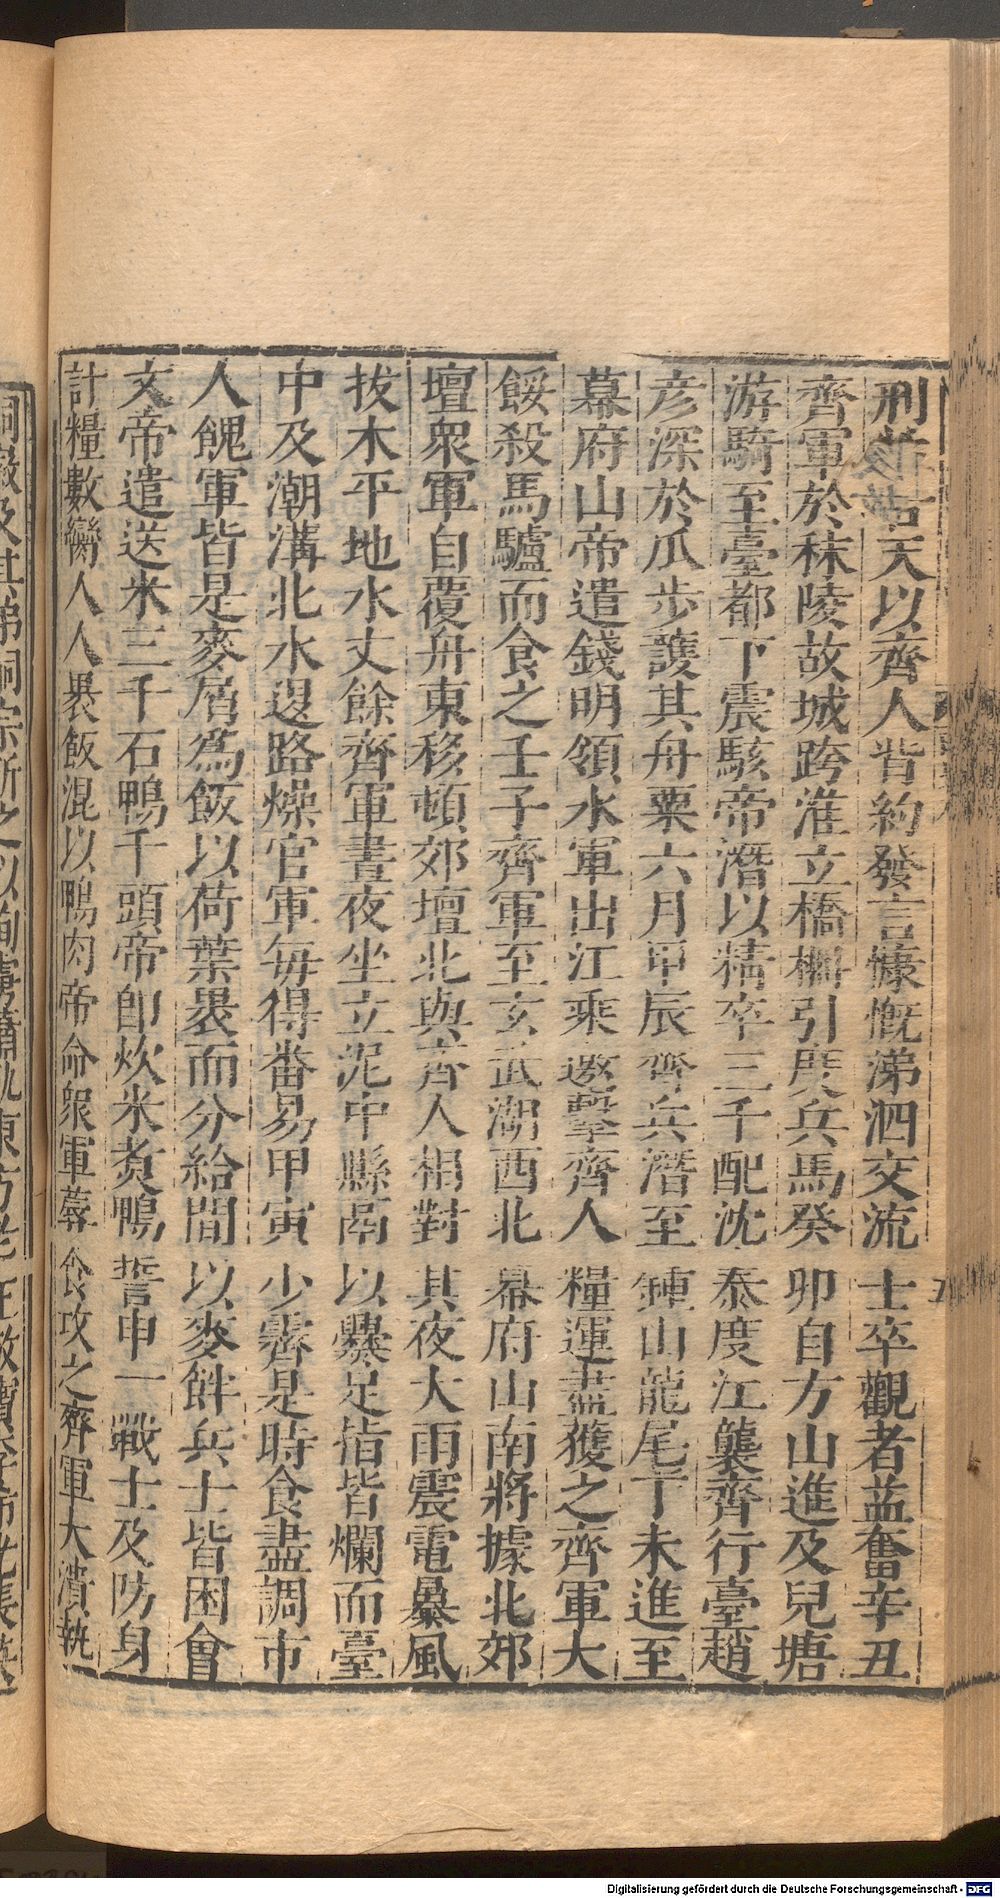 刑告天以齊人背約發言慷慨涕泗交流士卒觀者益奮辛丑
齊軍於秣陵故城跨淮立橋柵引度兵馬癸卯自方山進及兒塘
游騎至臺都下震駭帝潛以精卒三千配沈泰度江襲齊行臺趙
彦深於瓜步護其舟粟六月甲辰齊兵潛至鍾山龍尾丁未進至
幕府山帝遣錢明領水軍出江乘邀擊齊人糧運盡獲之齊軍大
餒殺馬驢而食之壬子齊軍至玄武湖西北幕府山南將據北郊
壇衆軍自覆舟東移頓郊壇北與齊人相對其夜大雨震電暴風
拔木平地水丈餘齊軍晝夜坐立泥中縣鬲以爨足指皆爛而臺
中及潮溝北水退路燥官軍毎得番易甲寅少霽是時食盡調市
人餽軍皆是麥屑爲飯以荷葉裹而分給間以麥餅兵士皆困會
文帝遣送米三千石鴨千頭帝即炊米煮鴨誓申一戰士及防身
計糧數臠人人裹飯混以鴨肉帝命衆軍蓐食攻之齊軍大潰執
Digitalisierung gefördert durch die Deutsche Forschungsgemeinschaft - DFG